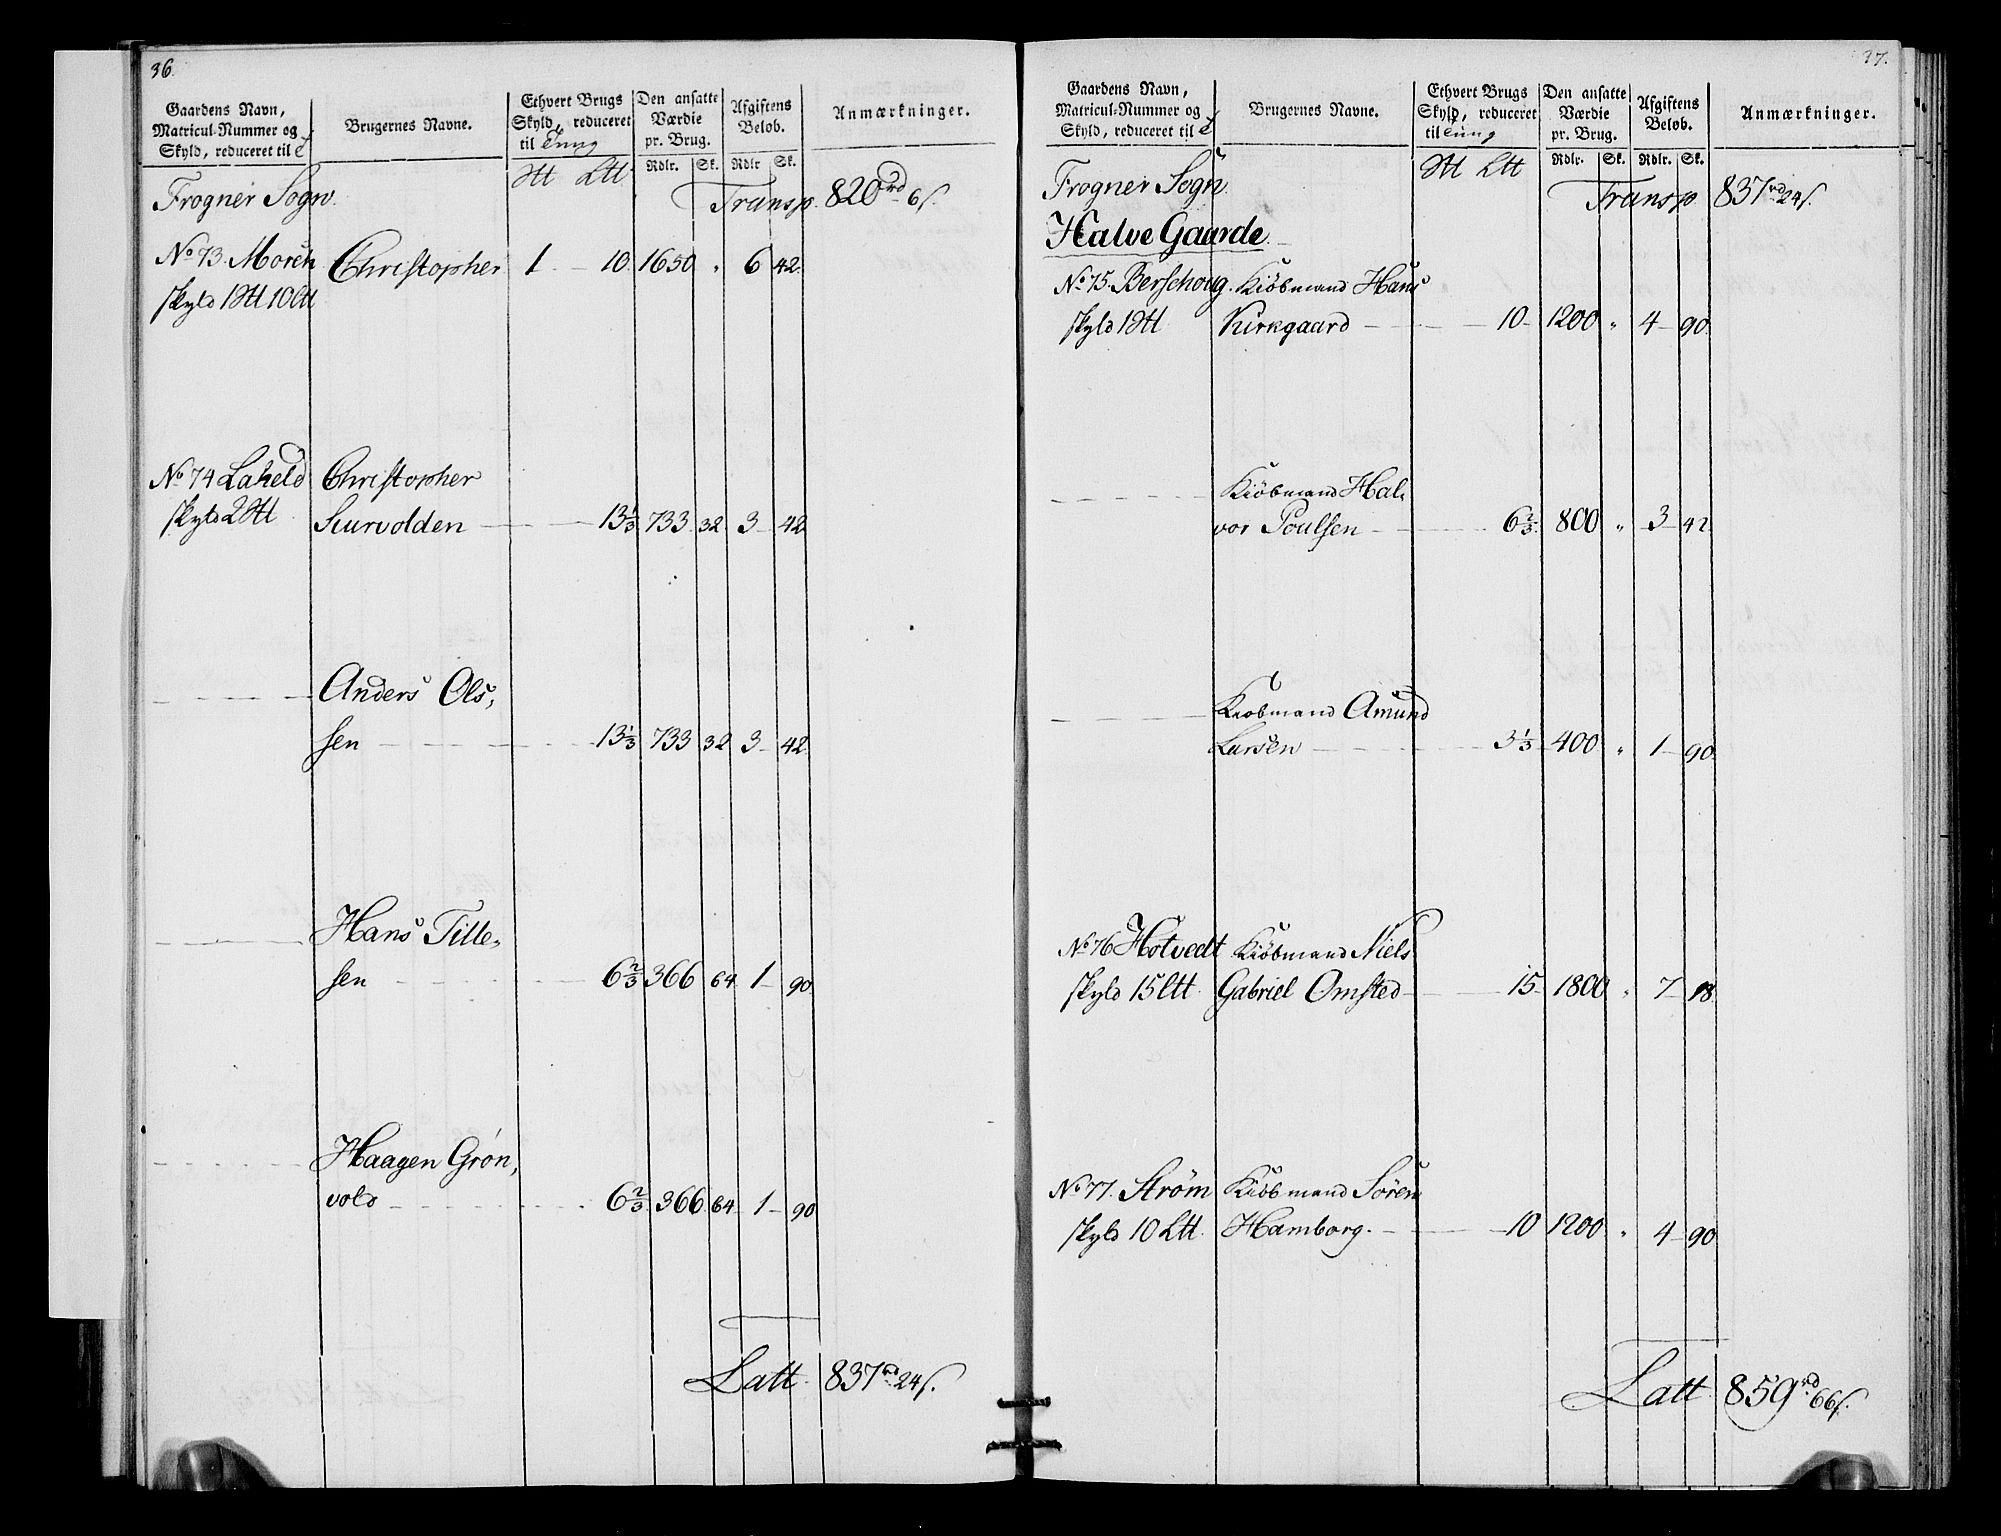 36.
Gaardens Navn, Matricul-Nummer og Skyld, reduceret til
Brugernes Navne.
Ethvert Brugs Skyld, reduceret til Tung
Den ansatte Værdie pr. Brug.
Afgiftens Beløb.
Anmærkninger.
Rdlr. Sk. Rdlr Sk.
Frogner Sogn. Transp. 820 rd 6 s.
No 73. Morch Christopher 1 - 10. 1650 " 6 42.
skyld 1 10 Ltt
No 74 Laheld Christopher
skyld 2 Scurvolden 13 1/3 733 32 3 42
Anders Ols,
sen 13 1/3 733 32 3 42
Hans Tille,
sen 6 2/3 366 64 1 90
Haagen Grøn,
vold 6 2/3 366 64 1 90
Latt. 837 rd 24 s.
37.
Gaardens Navn, Matricul-Nummer og Skyld, reduceret til
Brugernes Navne.
Ethvert Brugs Skyld, reduceret til Tung
Den ansatte Værdie pr. Brug.
Afgiftens Beløb.
Anmærkninger.
Rdlr. Sk. Rdlr. Sk.
Frogner Sogn Transp 837 rd 24 s.
Halve Gaarde
No 75. Berschoug. Kiöbmand Hans
skyld 1 Kirkgaard 10 1200 " 4 90.
Kiöbmand Hal,
vor Poulsen 6 2/3. 800 " 3 42
Kiobmand Amund
Larsen 3 1/3 400 " 1 90.
No 76 Hotvedt Kiöbmand Niels
skyld 15 Ltt. Gabriel Omsted 15 1800 " 7 18.
No 77. Strøm Kiöbmand Sören
skyld 10 Ltt. Hamborg. 10 1200 " 4 90
Latt 859 rd 66 s.